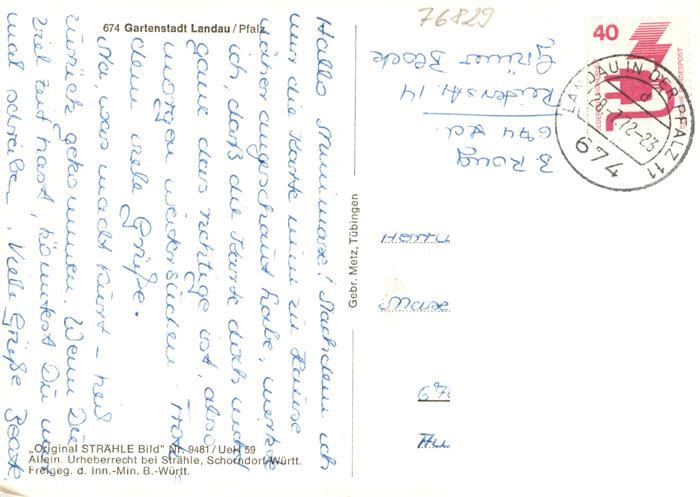 76829
674 Gartenstadt Landau/Pfalz
Hallo Minimaxe! Nachdem ich
mir die Karte nun zu Hause
näher angeschaut habe, merkte
ich, daß die Karte doch nicht
ganz das richtige ist, also
morgen weitersuchen
dem viele Grüße.
Na, was macht Kurt - heil
zurück gekommen. Wenn Du
viel Zeit hast, könntest Du
mal schreiben. Viele Grüße Beate
B.
674 Ld.
Reiterstr. 14
Grüner Block
40
DEUTSCHE BUNDESPOST
LANDAU IN DER PFALZ 11
d
28-7.72-23
674
Gebr. Metz, Tübingen
„Original STRÄHLE Bild" Nr. 9481/UeH 59
Allein. Urheberrecht bei Strähle, Schorndorf Württ.
Freigeg. d. Inn.-Min. B.-Württ.